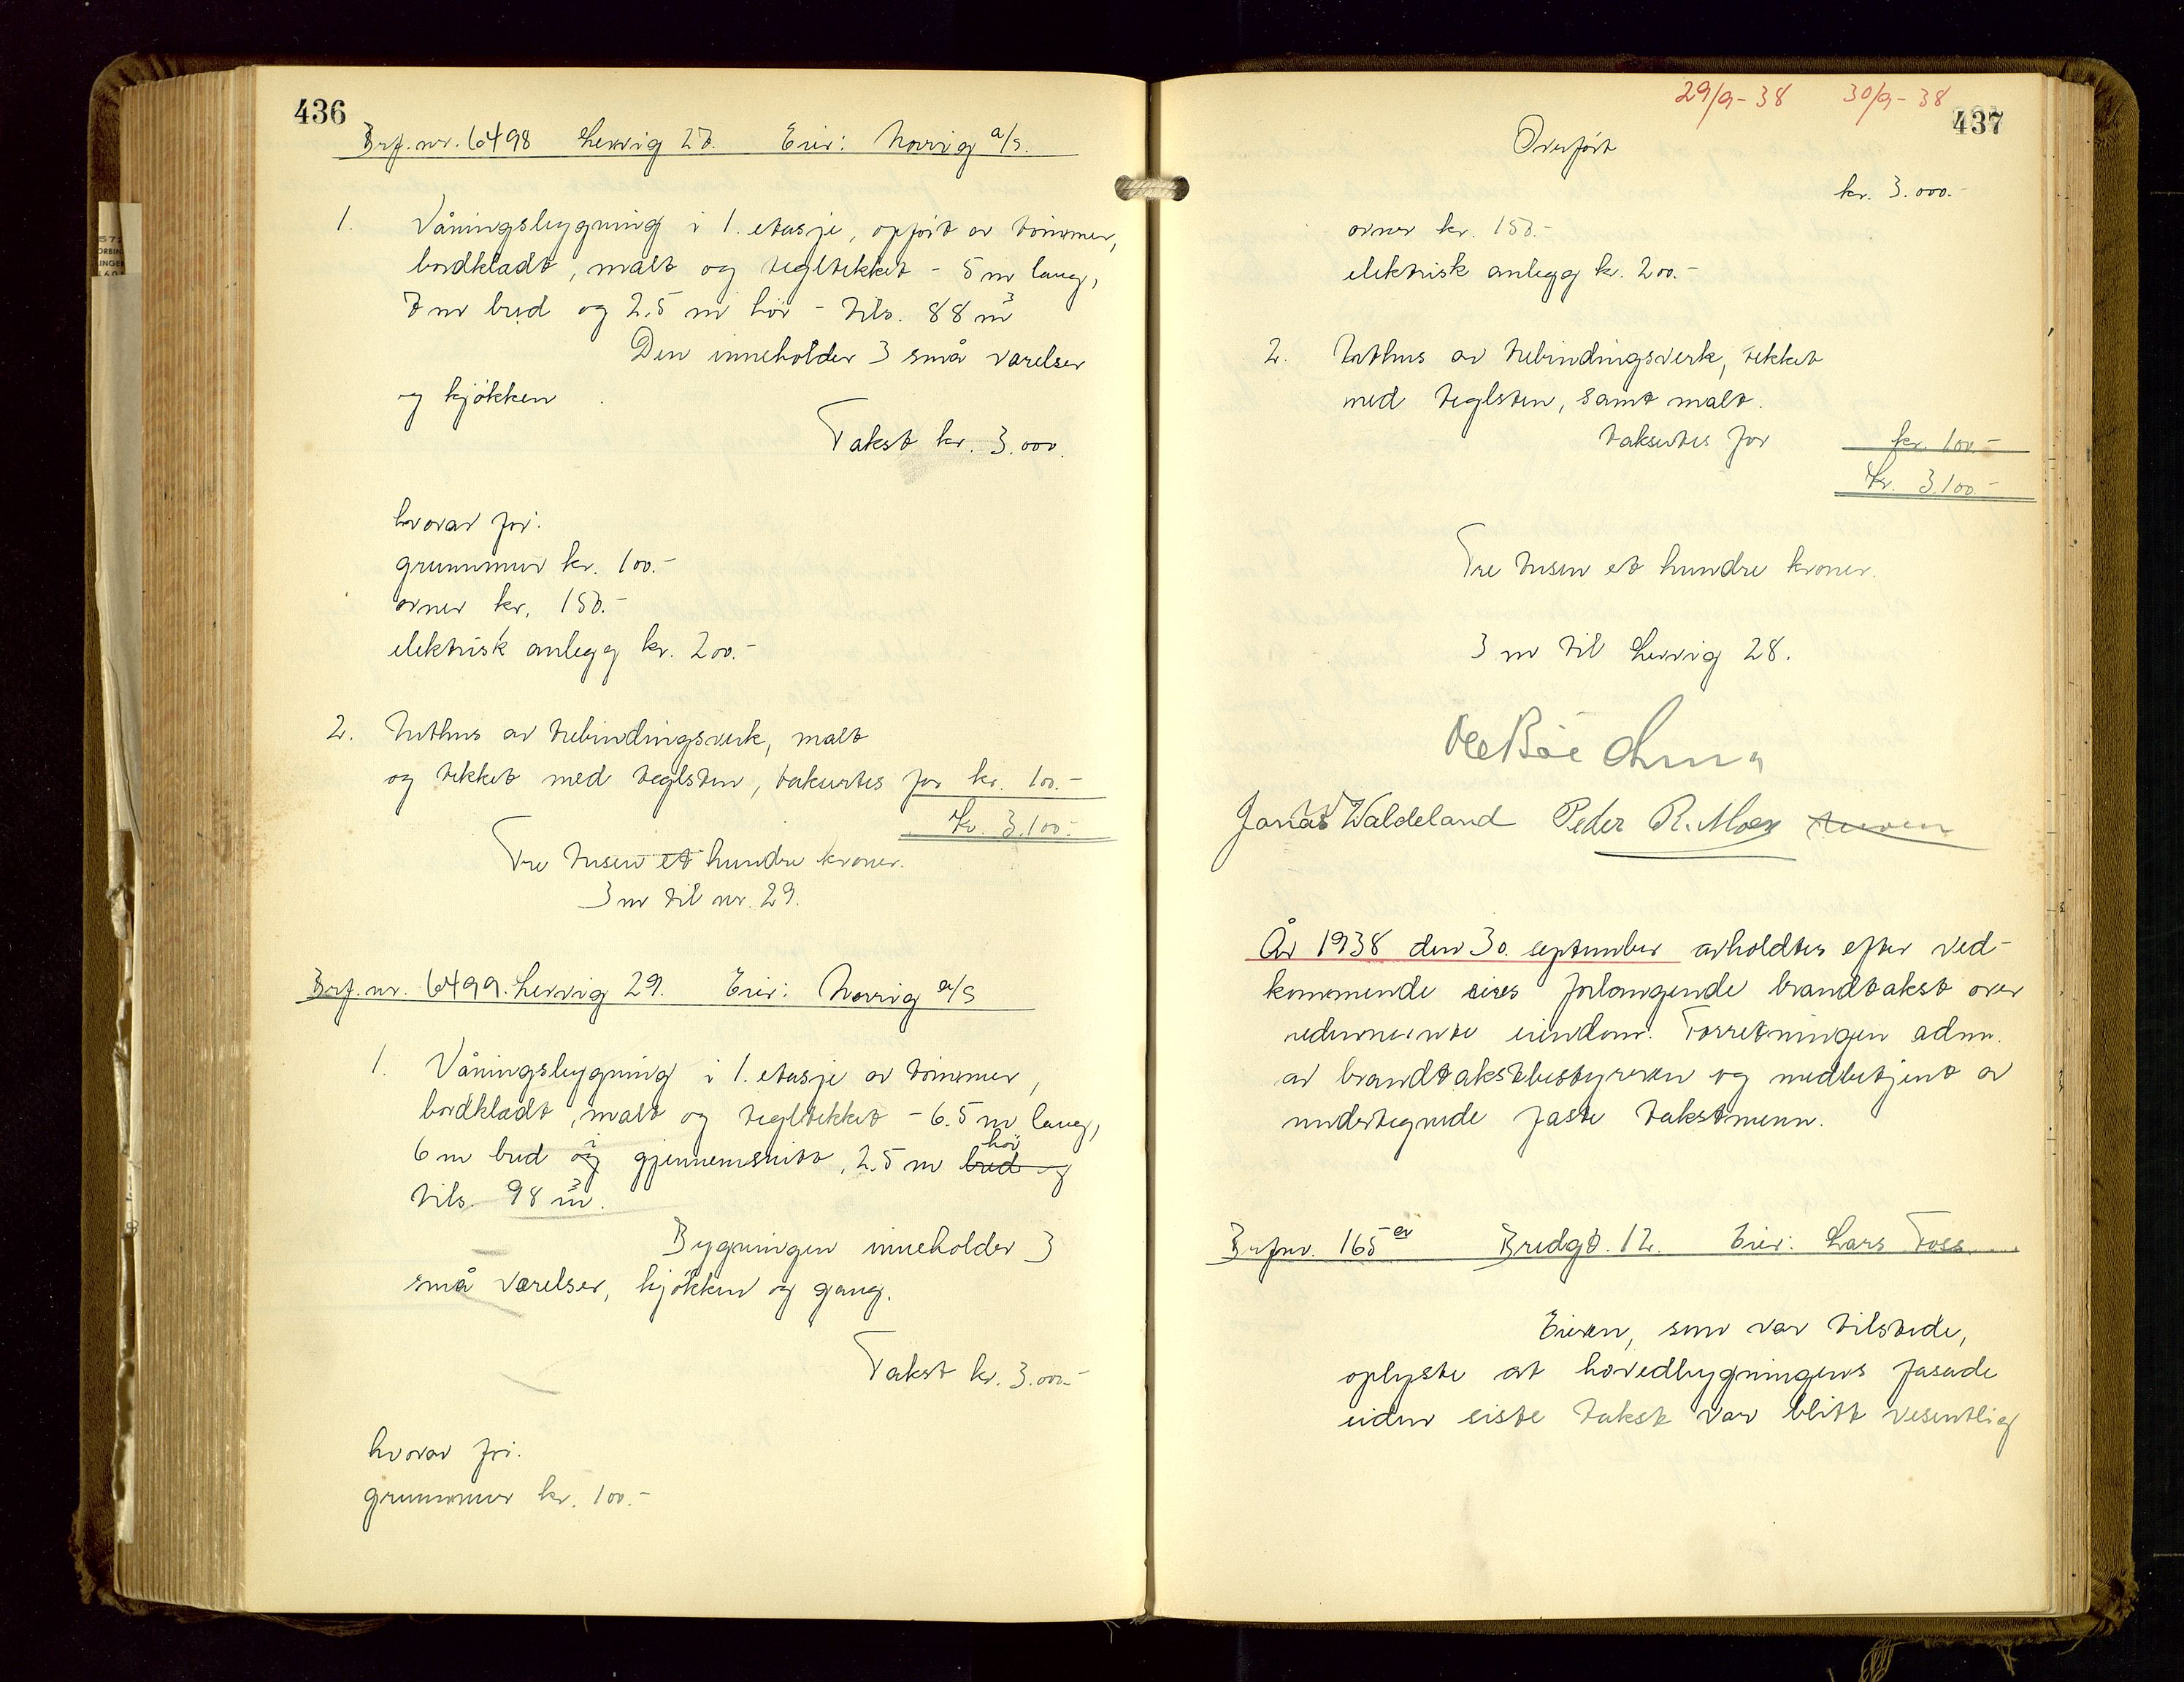 436
Brf. nr. 6498 Lervig 28. Eier: Norvig a/s.
1. Våningsbygning i 1. etasje, opført av tømmer,
bordklædt, malt og tegltekket - 5 m lang,
7 m bred og 2,5 m høi - tils. 88 m³
Den inneholder 3 små værelser
og kjøkken.
Takst kr. 3.000.
hvorav for:
grunnmur kr. 100.-
ovner kr. 150.-
elektrisk anlegg kr. 200.-
2. Uthus av utbindingsverk, malt
og tekket med teglsten, taksertes for kr. 100.-
Kr. 3.100.-
Tre tusen et hundre kroner.
3 m til nr. 29.
Brf. nr. 6499. Lervig 29. Eier: Norvig a/s
1. Våningsbygning i 1. etasje av tømmer,
bordklædt, malt og tegltekket - 6.5 m lang,
6 m bred og i gjennemsnitt, 2.5 m bred og høi
tils. 98 m³.
Bygningen inneholder 3
små værelser, kjøkken og gang.
Takst kr. 3.000.-
hvorav for:
grunnmur kr. 100.-
29/9-38 30/9-38
437
Overført
kr. 3.000.-
ovner kr. 150.-
elektrisk anlegg kr. 200.-
2. Uthus av utbindingsverk, tekket
med teglsten, samt malt.
taksertes for kr. 100.-
Kr. 3.100.-
Tre tusen et hundre kroner.
3 m til Lervig 28.
Jonas Waldeland Peder R. Moen
År 1938 den 30. september avholdtes efter ved-
kommende eiers forlangende brandtakst over
nedennevnte eiendom. Forretningen adm.
av brandtakstbestyreren og medbetjent av
undertegnede faste takstmenn.
Brf nr. 165 Bredgt. 12. Eier: Lars Foss
Eieren, som var tilstede,
oplyste at hovedbygningens fasade
siden siste takst var blitt vesentlig